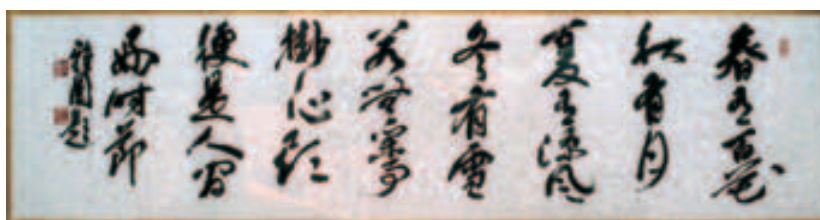 春有百花
秋有月
夏有涼風
冬有雪
若無閑事
掛心頭
便是人間
好時節
題